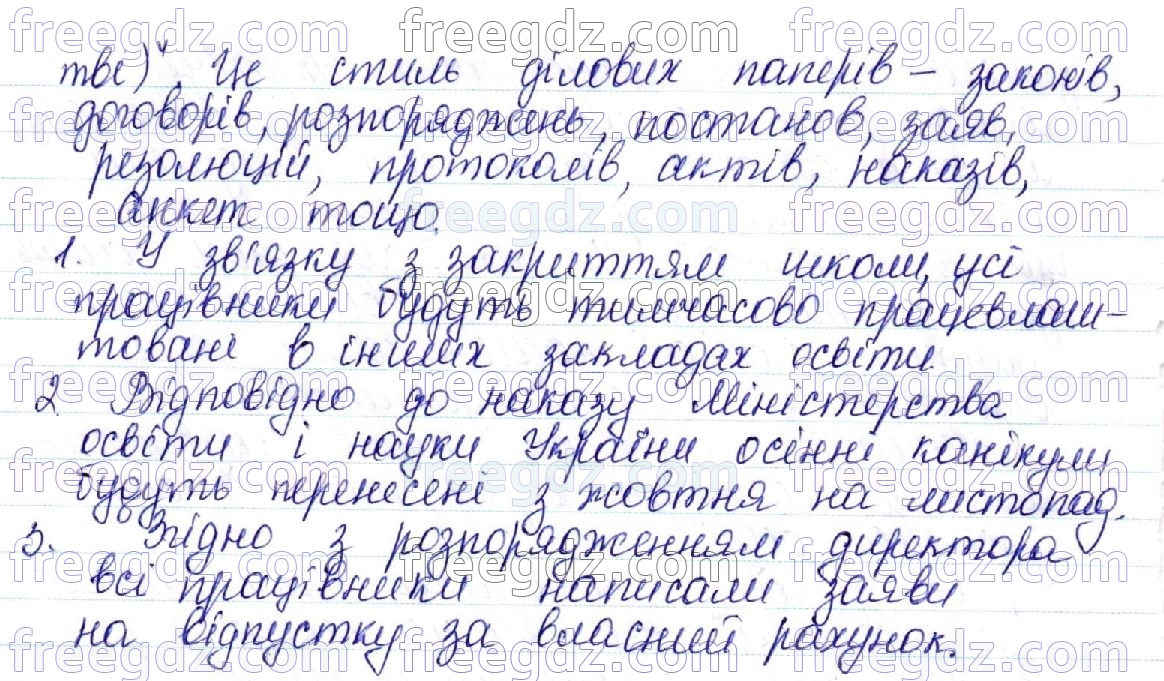 freegdz.com freegdz.com freegdz.com
тве)". Це стиль ділових паперів – законів,
договорів, розпоряджень, постанов, заяв,
резолюцій, протоколів, актів, наказів,
анкет тощо.
1. У зв'язку з закриттям школи, усі
працівники будуть тимчасово працевлаш-
товані в інших закладах освіти.
2 Відповідно до наказу Міністерства
освіти і науки України осінні канікули
будуть перенесені з жовтня на листопад.
3. Згідно з розпорядженням директора
всі працівники написали заяви
на відпустку за власний рахунок.